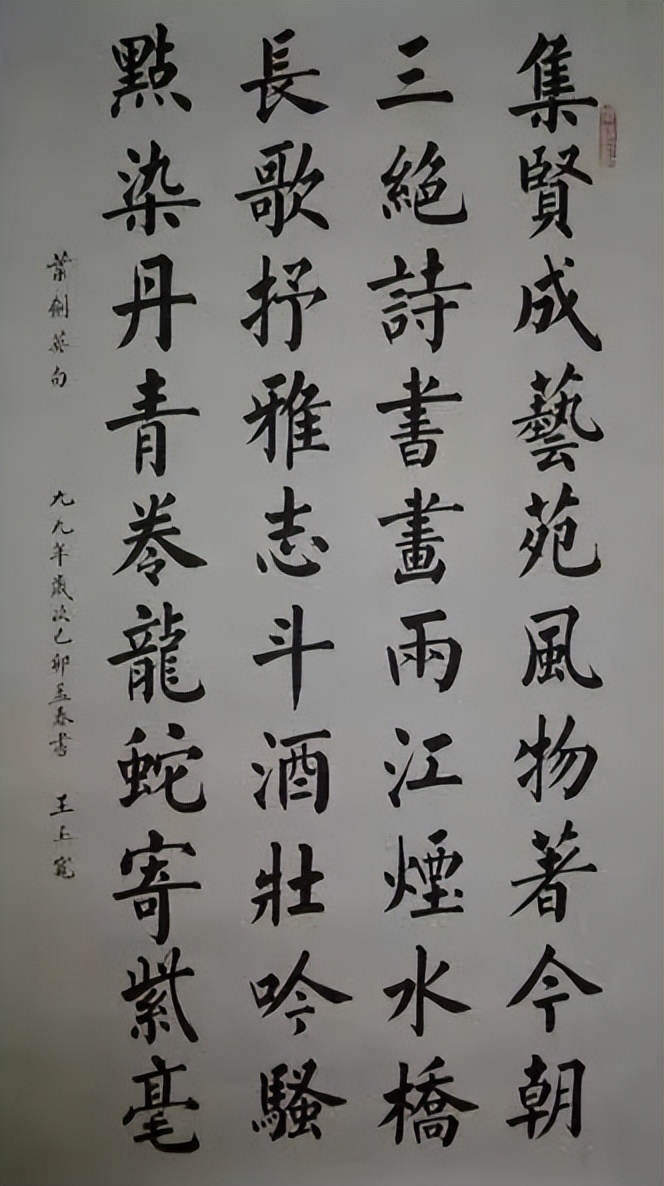 集賢成藝苑風物著今朝
三絕詩書畫兩江煙水橋
長歌抒雅志斗酒壯吟騷
點染丹青卷龍蛇寄紫毫
蕭劍英句 九九年歲次己卯孟春書 王上寬